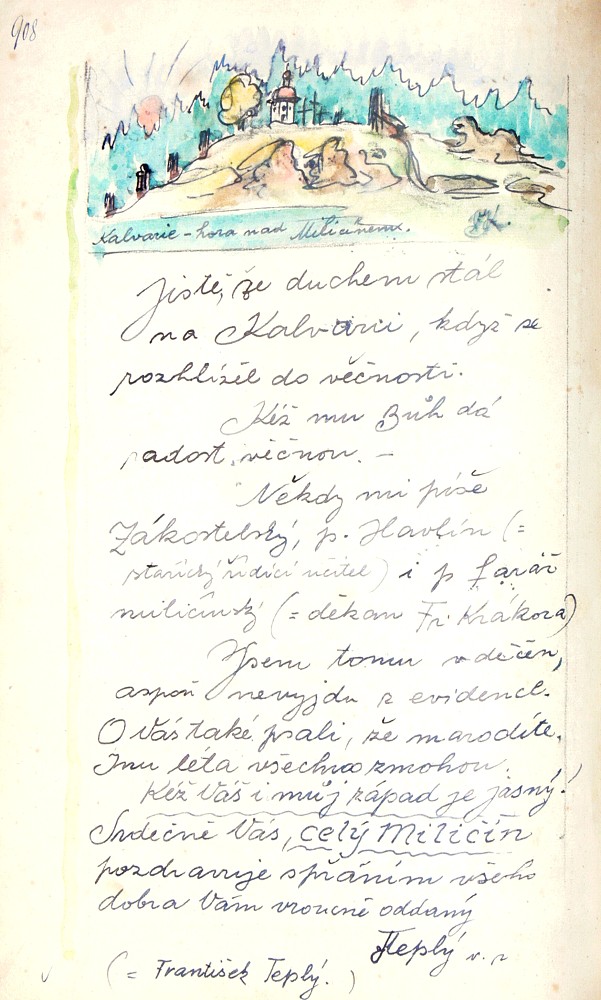 908
Kalvarie - hora nad Miličínem.
Jistě, že duchem stál
na Kalvarii, když se
rozhlížel do věčnosti.
Kéž mu Bůh dá
radost věčnou. -
Někdy mi píše
Zákostelský, p. Havlín (=
stařický řídící učitel) i p farář
miličínský (= děkan Fr. Krákora)
Jsem tomu vděčen,
aspoň nevyjdu z evidence.
O Vás také psali, že marodíte.
Inu léta všechno zmohou.
Kéž Váš i můj západ je jasný!
Srdečně Vás, celý Miličín
pozdravuje s přáním všeho
dobra Vám vroucně oddaný
FTeplý v. r
(= František Teplý.)